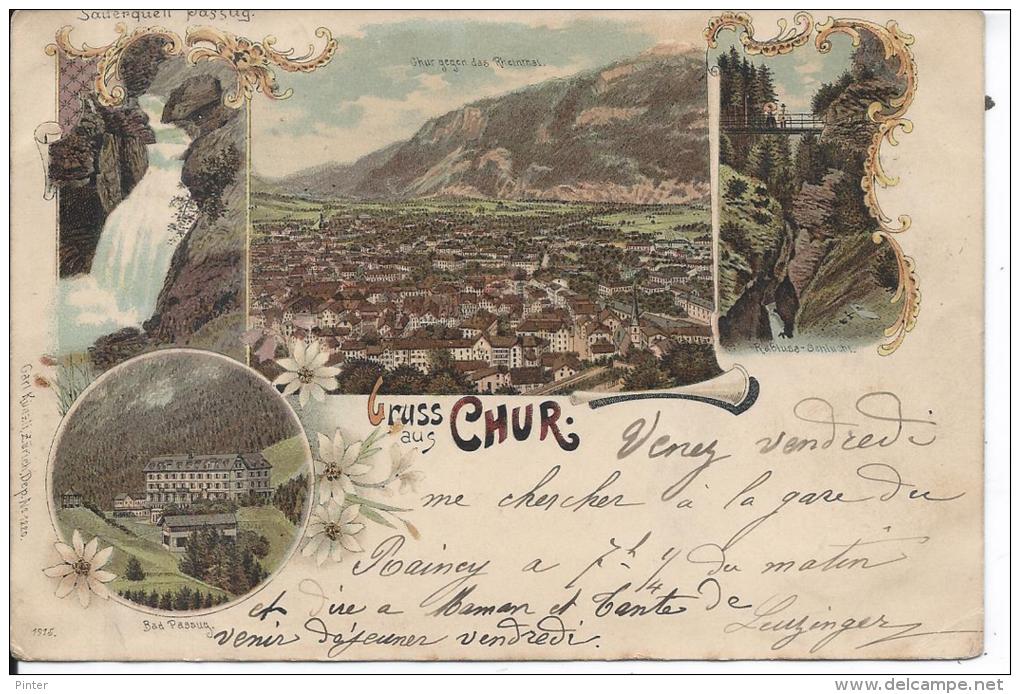 Sauerquell Passug.
Chur gegen das Rheinthal.
Rabiusa-Schlucht.
Gruss
aus CHUR.
Carl Künzli, Zürich, Dep. No 1220.
Bad Passug.
1515.
Venez vendredi
me chercher à la gare du
Raincy a 7h du matin
et dire a Maman et Tante de
venir déjeuner vendredi.
Leuzinger
Pinter
www.delcampe.net